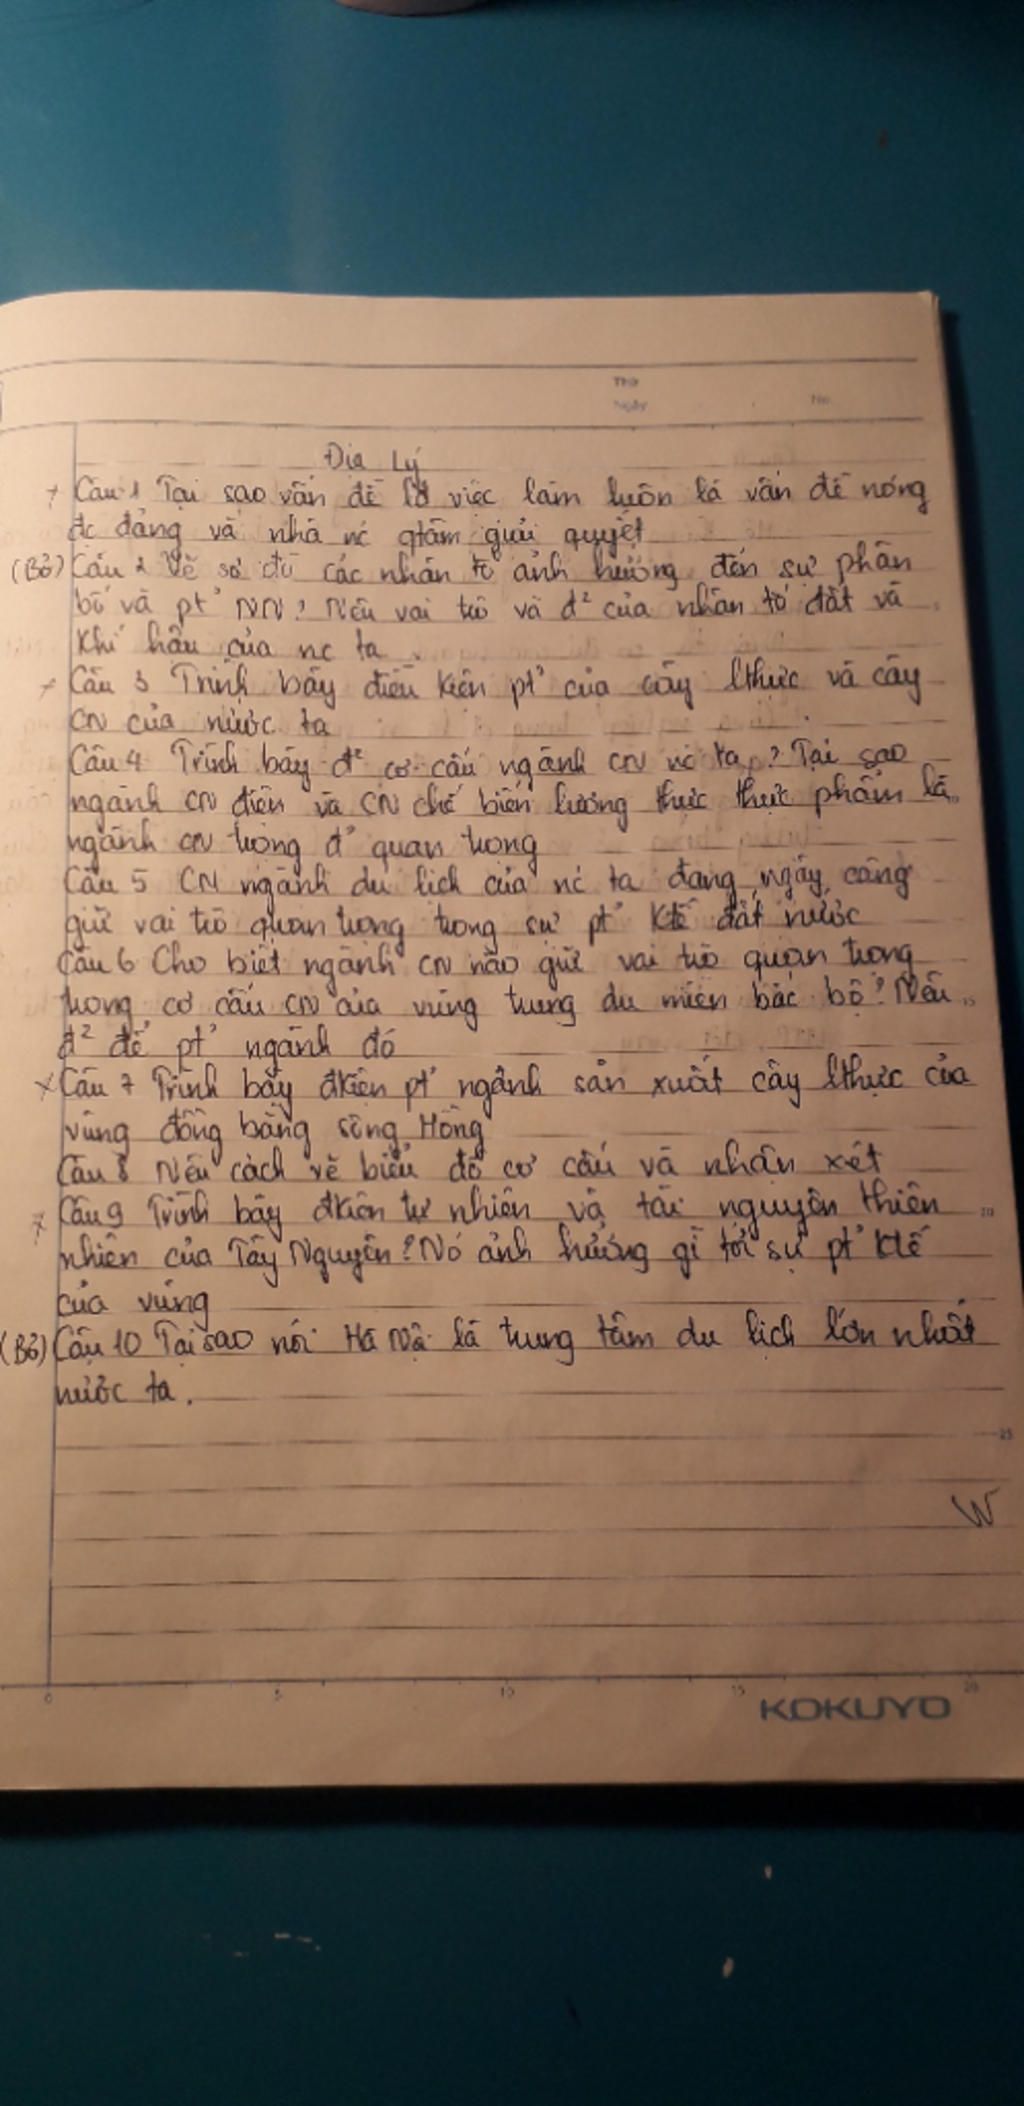 Thứ
Ngày No.
Địa Lý
+ Câu 1 Tại sao vấn đề việc làm luôn là vấn đề nóng
đc đảng và nhà nc qtâm giải quyết
(Bỏ) Câu 2 Vẽ sơ đồ các nhân tố ảnh hưởng đến sự phân
bố và pt' NN? Nêu vai trò và đ² của nhân tố đất và
khí hậu của nc ta
+ Câu 3 Trình bày điều kiện pt' của cây lthực và cây
CN của nước ta
Câu 4 Trình bày đ² cơ cấu ngành CN nc ta? Tại sao
ngành CN điện và CN chế biến lương thực thực phẩm là
ngành CN trọng đ' quan trọng
Câu 5 CM ngành du lịch của nc ta đang ngày càng
giữ vai trò quan trọng trong sự pt' Ktế đất nước
Câu 6 Cho biết ngành CN nào giữ vai trò quan trọng
trong cơ cấu CN của vùng trung du miền bắc bộ? Nêu
đ² để pt' ngành đó
x Câu 7 Trình bày đkiện pt' ngành sản xuất cây lthực của
vùng đồng bằng sông Hồng
Câu 8 Nêu cách vẽ biểu đồ cơ cấu và nhận xét
x Câu 9 Trình bày đkiện tự nhiên và tài nguyên thiên
nhiên của Tây Nguyên? Nó ảnh hưởng gì tới sự pt' Ktế
của vùng
(Bỏ) Câu 10 Tại sao nói Hà Nội là trung tâm du lịch lớn nhất
nước ta.
25
W
0 5 10 15 20
KOKUYO